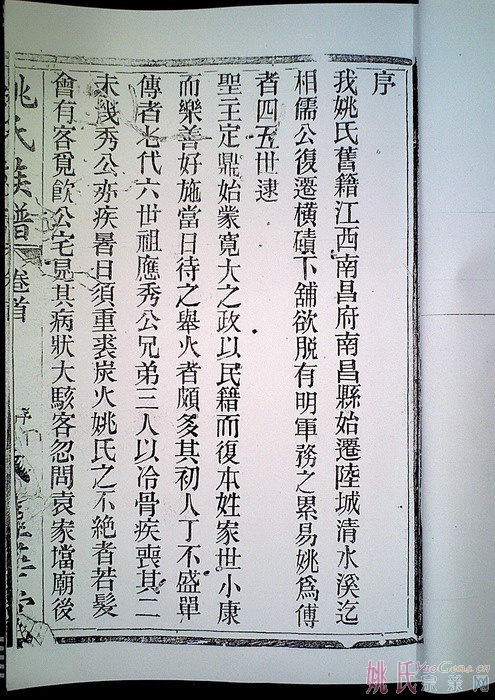 序
我姚氏舊籍江西南昌府南昌縣始遷陸城清水溪迄
相儒公復遷橫磧下舖欲脫有明軍務之累易姚爲傅
者四五世逮
聖王定鼎始業寬大之政以民籍而復本姓家世小康
而樂善好施當日待之舉火者頗多其初人丁不盛單
傳者七代六世祖應秀公兄弟三人以冷骨疾喪其二
未幾秀公亦疾暑日須重裘炭火姚氏之不絕者若髮
會有客覓飲公宅見其病狀大駭客忽問袁家壋廟後
姚氏族譜
卷首
序
姚氏